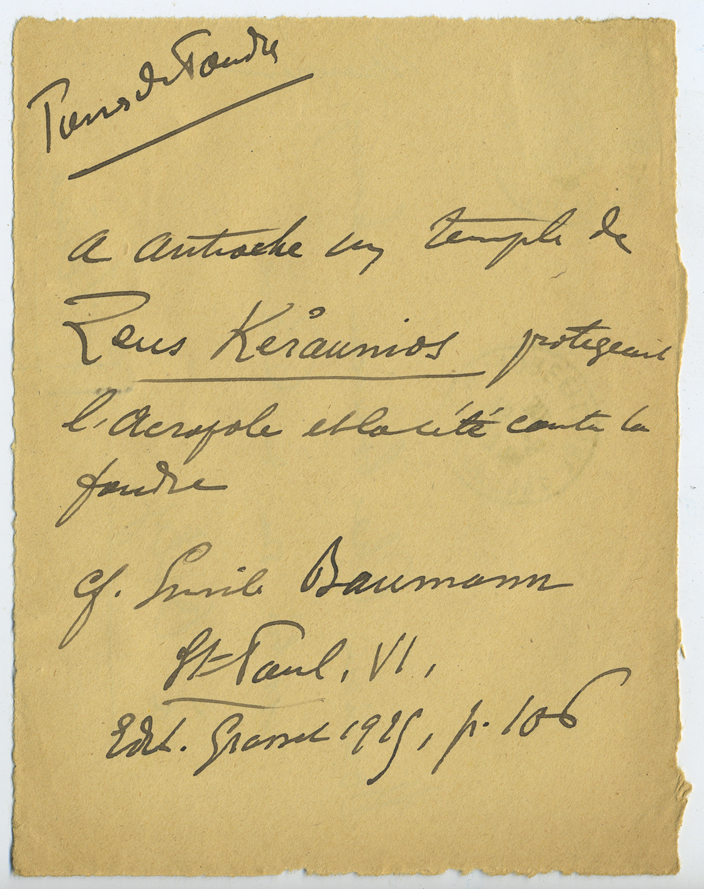 Pierres de Foudre
A Antioche un temple de
Zeus Keraunios protégeant
l'Acropole et la cité contre la
foudre
cf. Emile Baumann
St Paul, VI,
Edit. Grasset 1925, p. 106